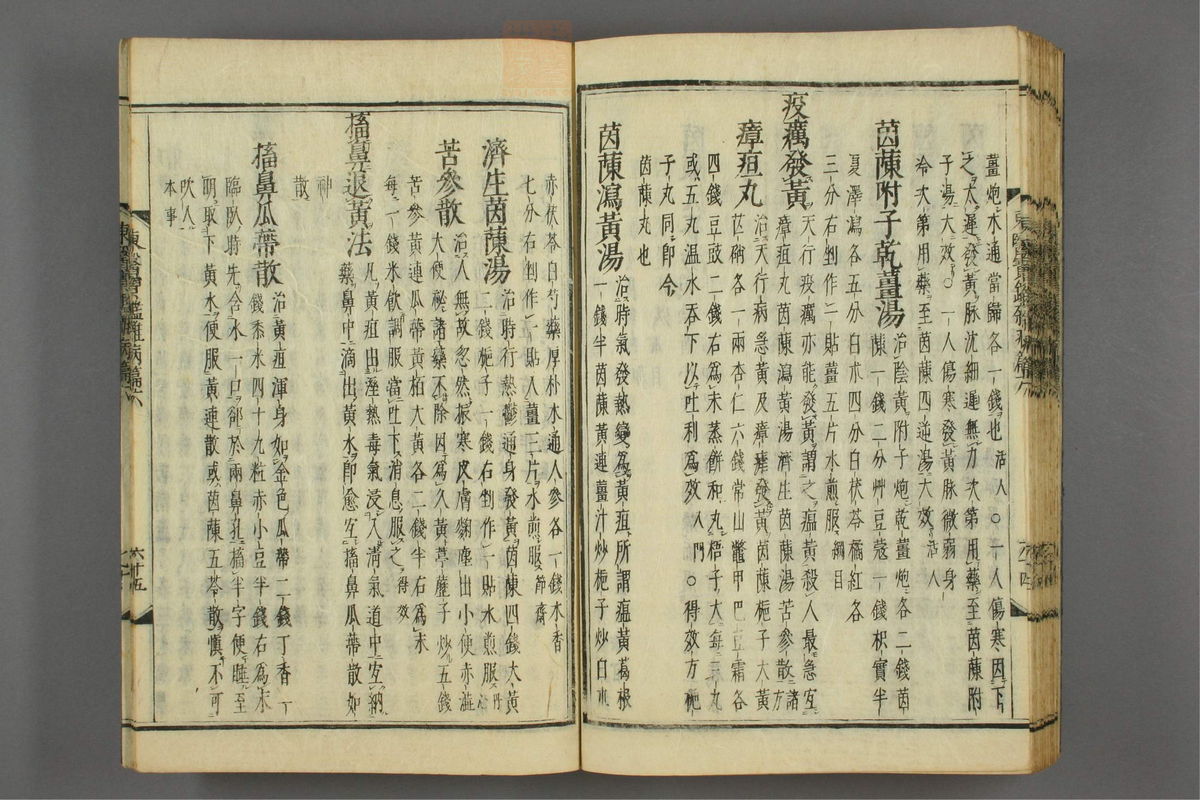 薑炮木通當歸各一錢也活人○一人傷寒因下
之太遲發黃脉沈細遲無力次第用藥至茵蔯附
子湯大效○一人傷寒發黃脉微弱身
冷次第用藥至茵蔯四逆湯大效活人
茵蔯附子乾薑湯治陰黃附子炮乾薑炮各二錢茵
蔯一錢二分艸豆蔻一錢枳實半
夏澤瀉各五分白朮四分白茯苓橘紅各
三分右剉作一貼薑五片水煎服綱目
疫癘發黃天行疫癘亦能發黃謂之瘟黃殺人最急宜
瘴疸丸茵蔯瀉黃湯濟生茵蔯湯苦參散諸方
瘴疸丸治天行病急黃及瘴瘧發黃茵蔯梔子大黃
芒硝各一兩杏仁六錢常山鱉甲巴豆霜各
四錢豆豉二錢右爲末蒸餠和丸梧子大每三丸
或五丸溫水吞下以吐利爲效入門○得效方梔
子丸同卽今
茵蔯丸也
茵蔯瀉黃湯治時氣發熱變爲黃疸所謂瘟黃葛根
一錢半茵蔯黃連薑汁炒梔子炒白朮
赤茯苓白芍藥厚朴木通人參各一錢木香
七分右剉作一貼入薑三片水煎服節齋
濟生茵蔯湯治時行熱鬱通身發黃茵蔯四錢大黃
二錢梔子一錢右剉作一貼水煎服丹心
苦參散治人無故忽然振寒皮膚麴塵出小便赤澁
大便秘諸藥不除因爲久黃葶藶子炒五錢
苦參黃連瓜蔕黃柏大黃各二錢半右爲末
每一錢米飮調服當吐下消息服之得效
搐鼻退黃法凡黃疸出濕熱毒氣浸入淸氣道中宜納
藥鼻中滴出黃水卽愈宜搐鼻瓜蔕散如
神
散
搐鼻瓜蔕散治黃疸渾身如金色瓜蔕二錢丁香一
錢黍米四十九粒赤小豆半錢右爲末
臨臥時先含水一口却於兩鼻孔搐半字便睡至
明取下黃水便服黃連散或茵蔯五苓散愼不可
吹人
本事
東醫寶鑑雜病篇卷六
六十五